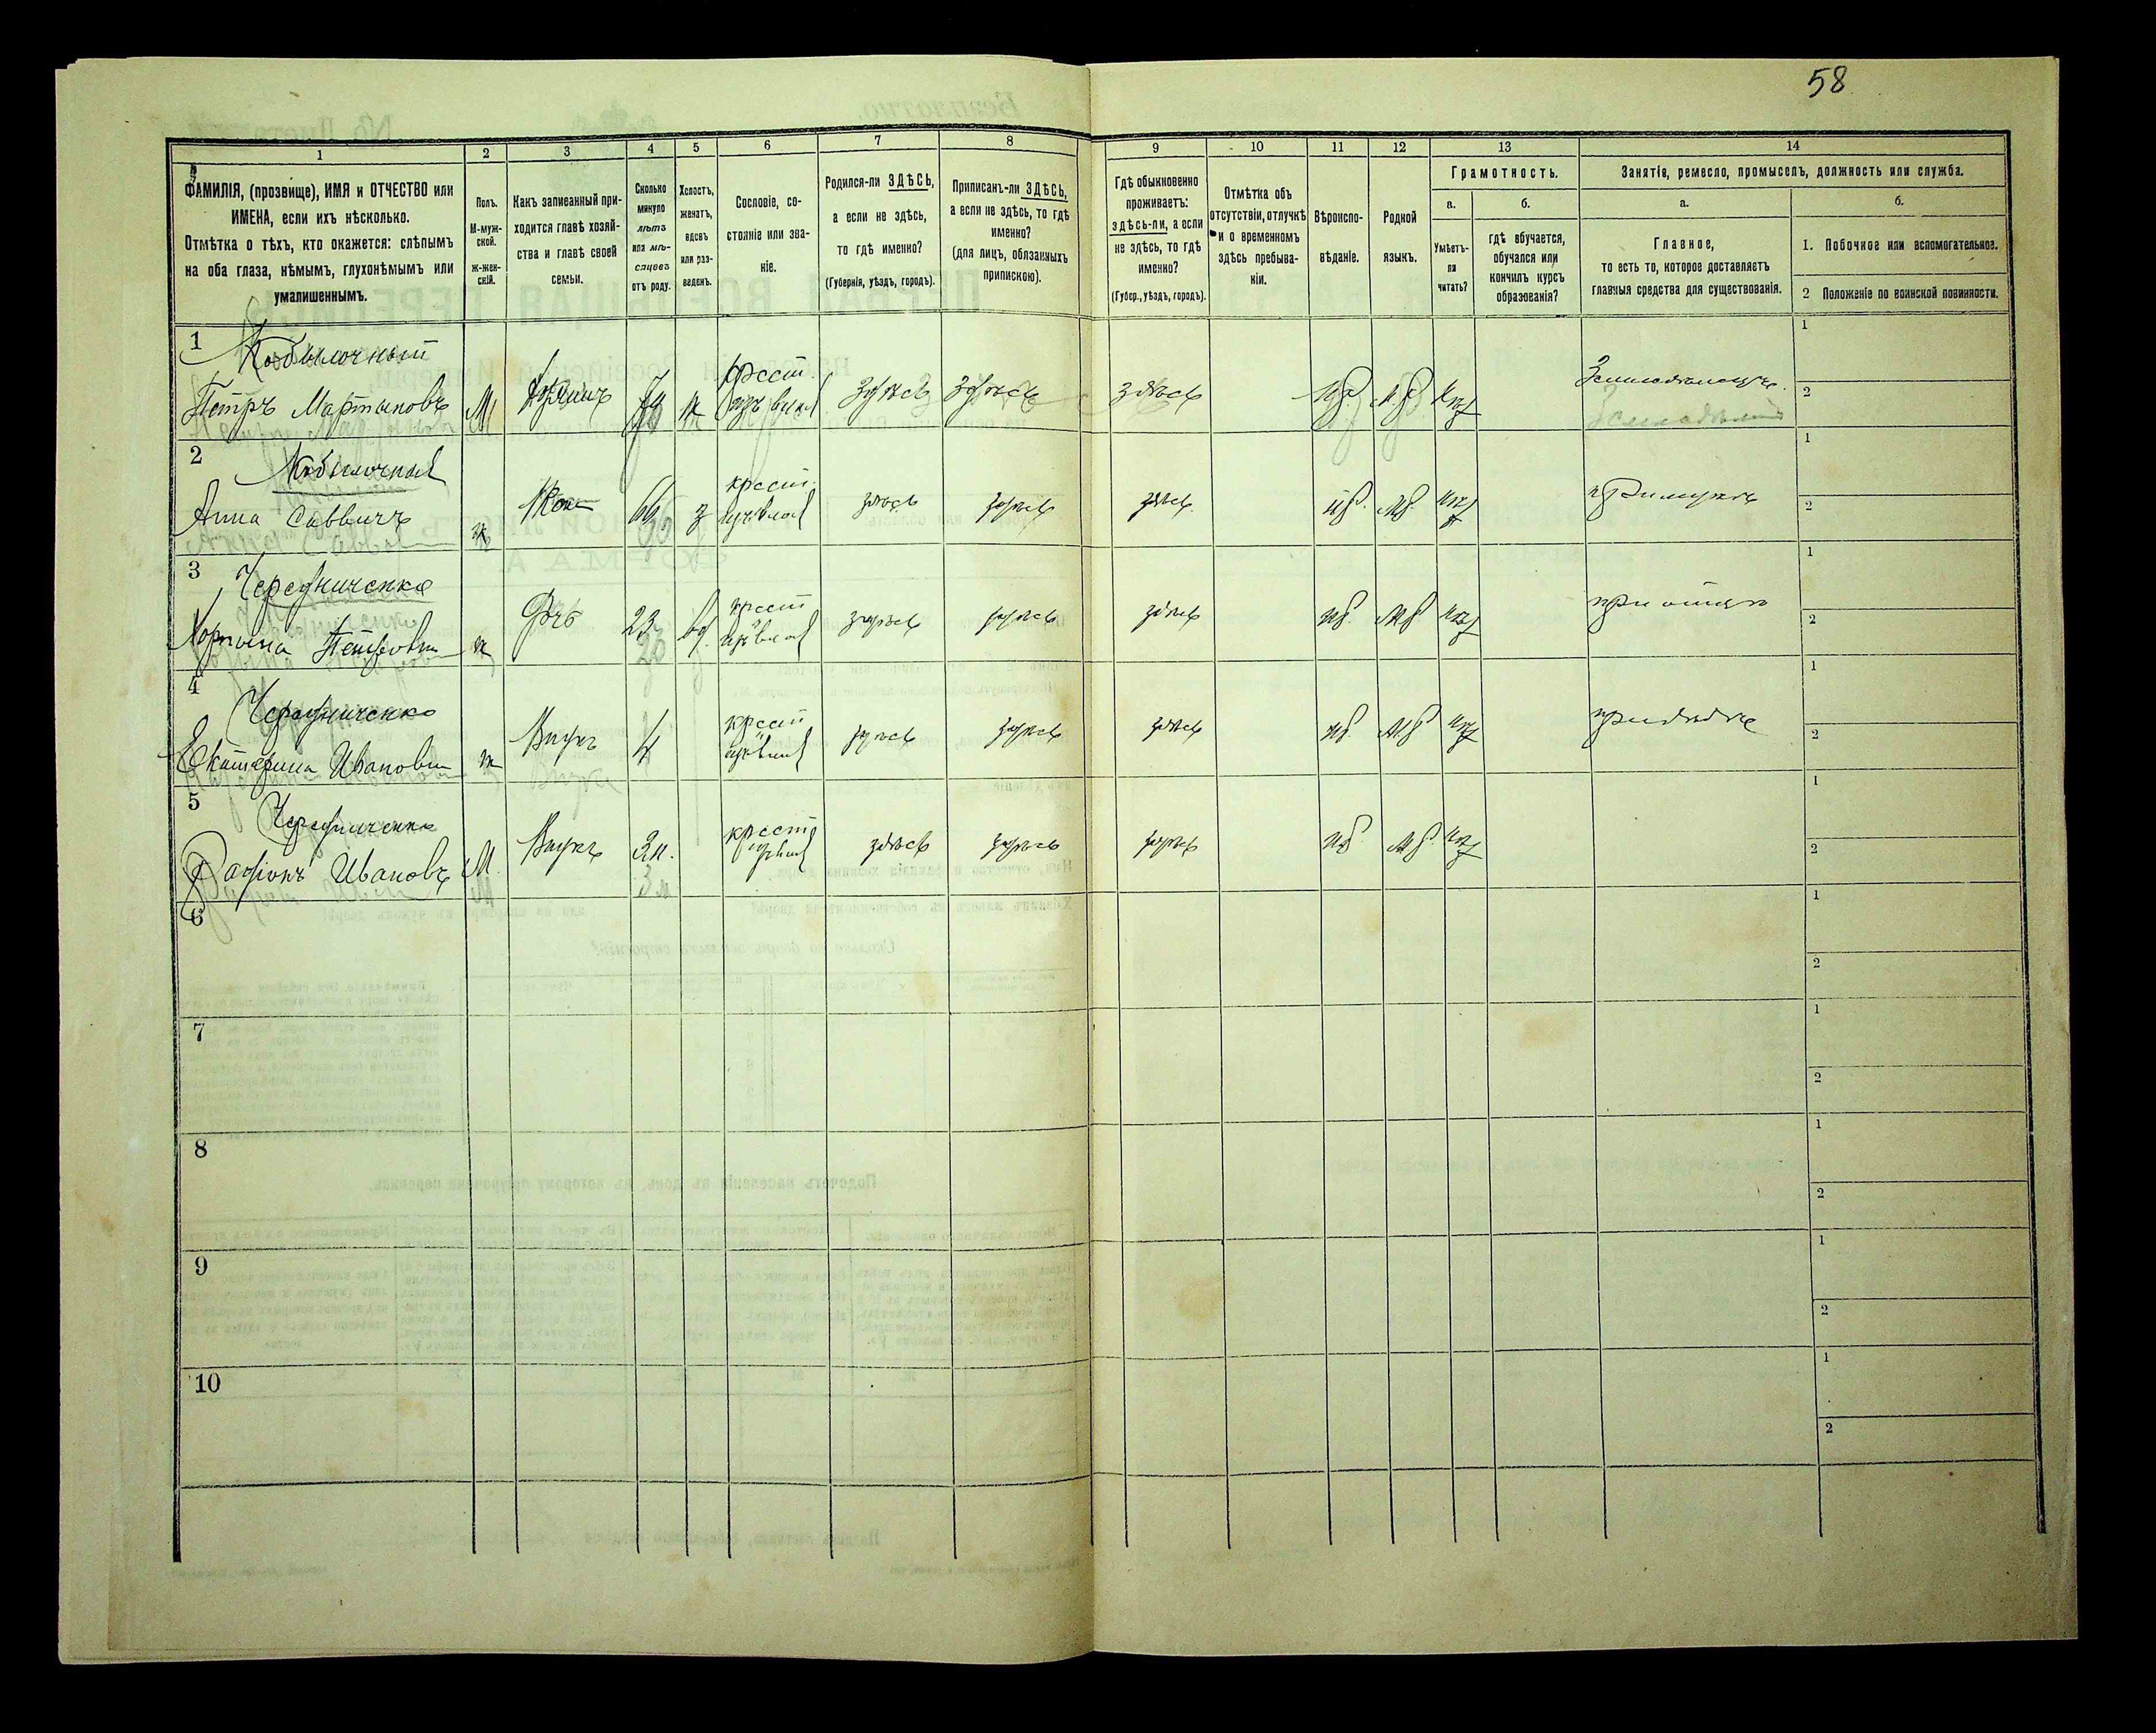 58
1
2
3
4
5
6
7
8
9
10
11
12
13
14
ФАМИЛІЯ, (прозвище), ИМЯ и ОТЧЕСТВО или
ИМЕНА, если ихъ нѣсколько.
Отмѣтка о тѣхъ, кто окажется: слѣпымъ
на оба глаза, нѣмымъ, глухонѣмымъ или
умалишеннымъ.
Полъ.
М-муж-
ской.
ж-жен-
скій.
Какъ записанный при-
ходится главѣ хозяй-
ства и главѣ своей
семьи.
Сколько
минуло
лѣтъ
или мѣ-
сяцевъ
отъ роду.
Холостъ,
женатъ,
вдовъ
или раз-
веденъ.
Сословіе, со-
стояніе или зва-
ніе.
Родился-ли ЗДѢСЬ,
а если не здѣсь,
то гдѣ именно?
(Губернія, уѣздъ, городъ).
Приписанъ-ли ЗДѢСЬ,
а если не здѣсь, то гдѣ
именно?
(для лицъ, обязанныхъ
припискою).
Гдѣ обыкновенно
проживаетъ:
здѣсь-ли, а если
не здѣсь, то гдѣ
именно?
(Губер., уѣздъ, городъ).
Отмѣтка объ
отсутствіи, отлучкѣ
и о временномъ
здѣсь пребыва-
ніи.
Вѣроиспо-
вѣданіе.
Родной
языкъ.
Грамотность.
а.
Умѣетъ-
ли
читать?
б.
гдѣ обучается,
обучался или
кончилъ курсъ
образованія?
Занятіе, ремесло, промыселъ, должность или служба.
а.
Главное,
то есть то, которое доставляетъ
главныя средства для существованія.
б.
1. Побочное или вспомогательное.
2 Положеніе по воинской повинности.
1
Кобылочный
Петръ Мартыновъ
М
хозяинъ
крест.
здѣсь
здѣсь
здѣсь
Земледѣлецъ
1
2
2
Кобылочная
Анна Саввичъ
ж
Жена
66
крест.
здѣсь
здѣсь
здѣсь
при мужѣ
1
2
3
Чередниченко
Петровна
ж
Дчь
23
вд.
крест
здѣсь
здѣсь
здѣсь
при отцѣ
1
2
4
Чередниченко
Екатерина Ивановна
ж
Внука
4
крест
здѣсь
здѣсь
здѣсь
при дѣдѣ
1
2
5
Чередниченко
Родіонъ Ивановъ
М
Внукъ
3 м.
крест
здѣсь
здѣсь
здѣсь
1
2
6
1
2
7
1
2
8
1
2
9
1
2
10
1
2